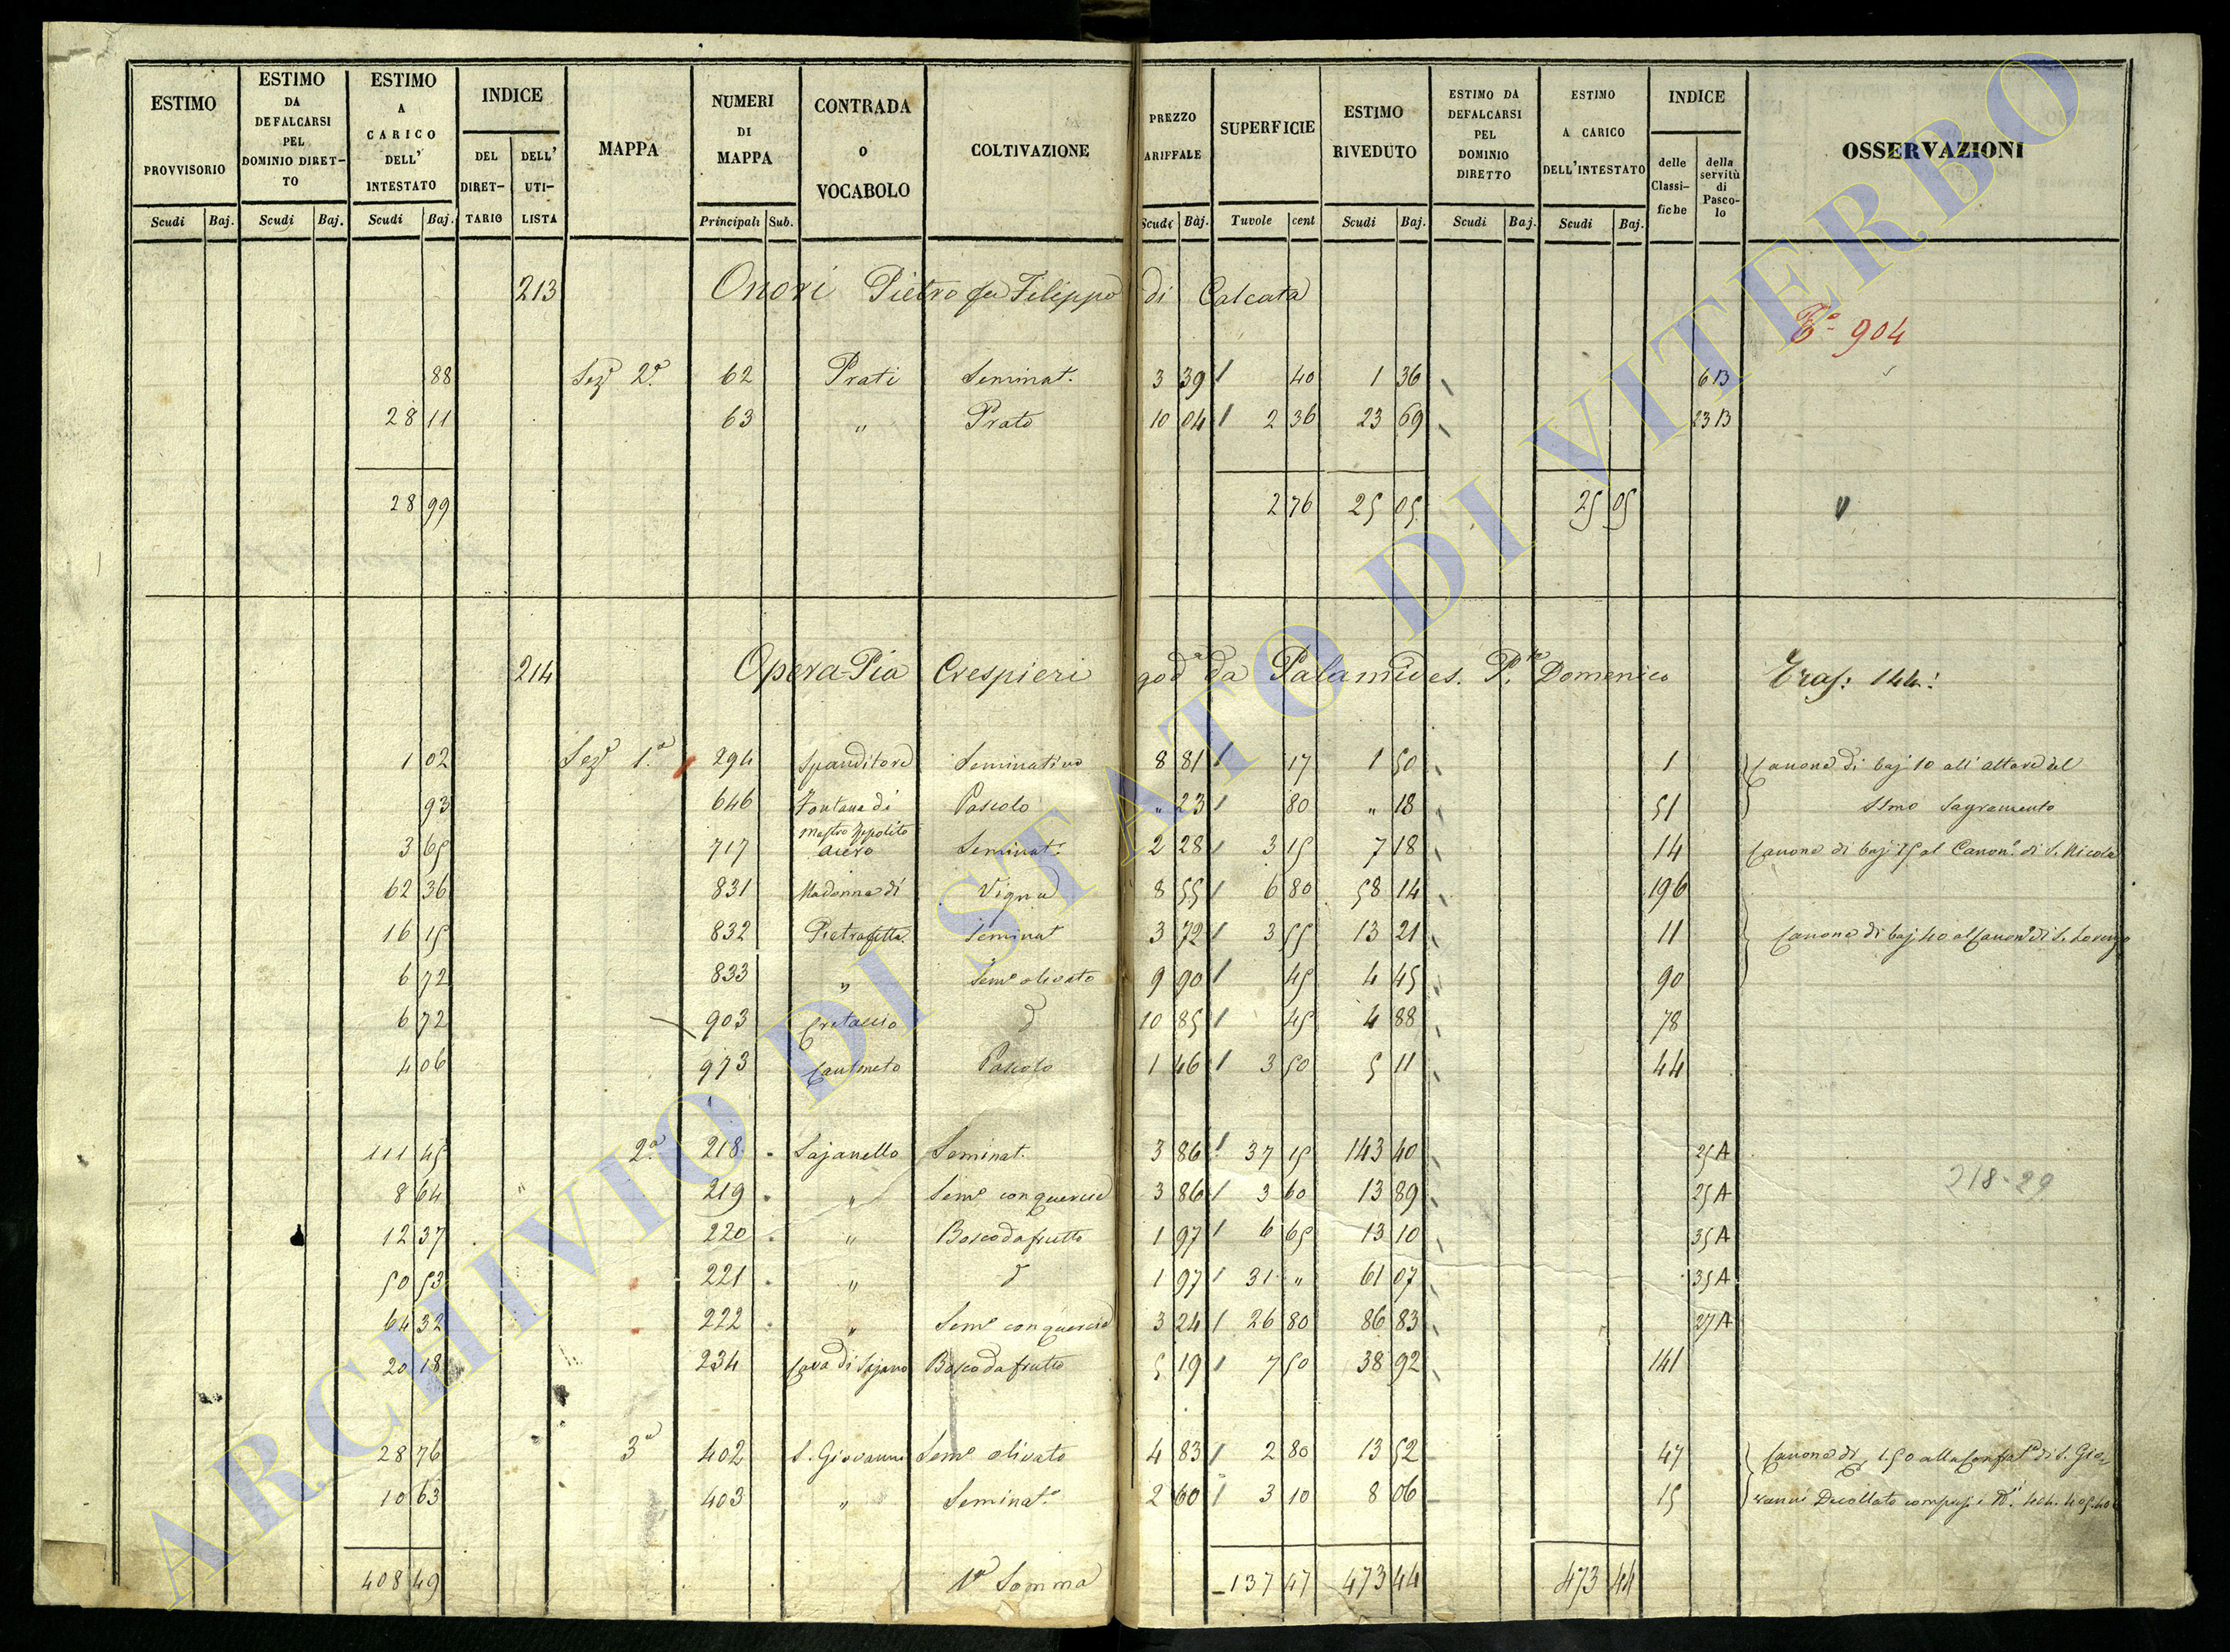 ESTIMO PROVVISORIO Scudi Baj.
ESTIMO DA DEFALCARSI PEL DOMINIO DIRETTO Scudi Baj.
ESTIMO A CARICO DELL' INTESTATO Scudi Baj.
INDICE DEL DIRETTARIO DELL' UTILISTA
MAPPA
NUMERI DI MAPPA Principali Sub.
CONTRADA O VOCABOLO
COLTIVAZIONE
PREZZO ARIFFALE Scudi Baj.
SUPERFICIE Tuvole cent
ESTIMO RIVEDUTO Scudi Baj.
ESTIMO DA DEFALCARSI PEL DOMINIO DIRETTO Scudi Baj.
ESTIMO A CARICO DELL'INTESTATO Scudi Baj.
INDICE delle Classifiche della servitù di Pascolo
OSSERVAZIONI
213 Onori Pietro fu Filippo di Calcata
Tº 904
88 Sezº 2ª 62 Prati Seminat. 3 39 40 1 36 6 B
28 11 63 " Prato 10 04 2 36 23 69 23 B
28 99 2 76 25 05 25 05
214 Opera Pia Crespieri godª da Palamides. P.re Domenico Tras: 144:
1 02 Sezº 1ª 294 Spanditore Seminativo 8 81 17 1 50 1 Canone di baj 10 all'altare del
93 646 Fontana di Pascolo " 23 80 " 18 51 SSmo Sagramento
Mastro Ippolito
3 65 717 Seminat. 2 28 3 15 7 18 14 Canone di baj 15 al Canon.º di S. Nicola
62 36 831 Madonna di Vigna 8 55 6 80 58 14 196
16 15 832 Pietrafitta Seminat 3 72 3 55 13 21 11 Canone di baj 40 al Canonº di S. Lorenzo
6 72 833 " Semº olivato 9 90 45 4 45 90
6 72 903 Cretaccio d 10 85 45 4 88 78
4 06 973 Canfineto Pascolo 1 46 3 50 5 11 44
111 45 2ª 218 Sajanello Seminat. 3 86 37 15 143 40 25 A
8 64 219 " Semº con quercie 3 86 3 60 13 89 25 A 218-29
12 37 220 " Bosco da frutto 1 97 6 65 13 10 35 A
50 53 221 " d 1 97 31 " 61 07 35 A
64 32 222 " Semº con quercie 3 24 26 80 86 83 27 A
20 18 234 Cava di Sajano Bosco da frutto 5 19 7 50 38 92 141
28 76 3ª 402 S. Giovanni Semº olivato 4 83 2 80 13 52 47 Canone di 1.50 alla Confratª di S. Gio
10 63 403 " Seminat.º 2 60 3 10 8 06 15 vanni Decollato 404. 405.
408 49 1ª Somma 137 47 473 44 473 44
ARCHIVIO DI STATO DI VITERBO